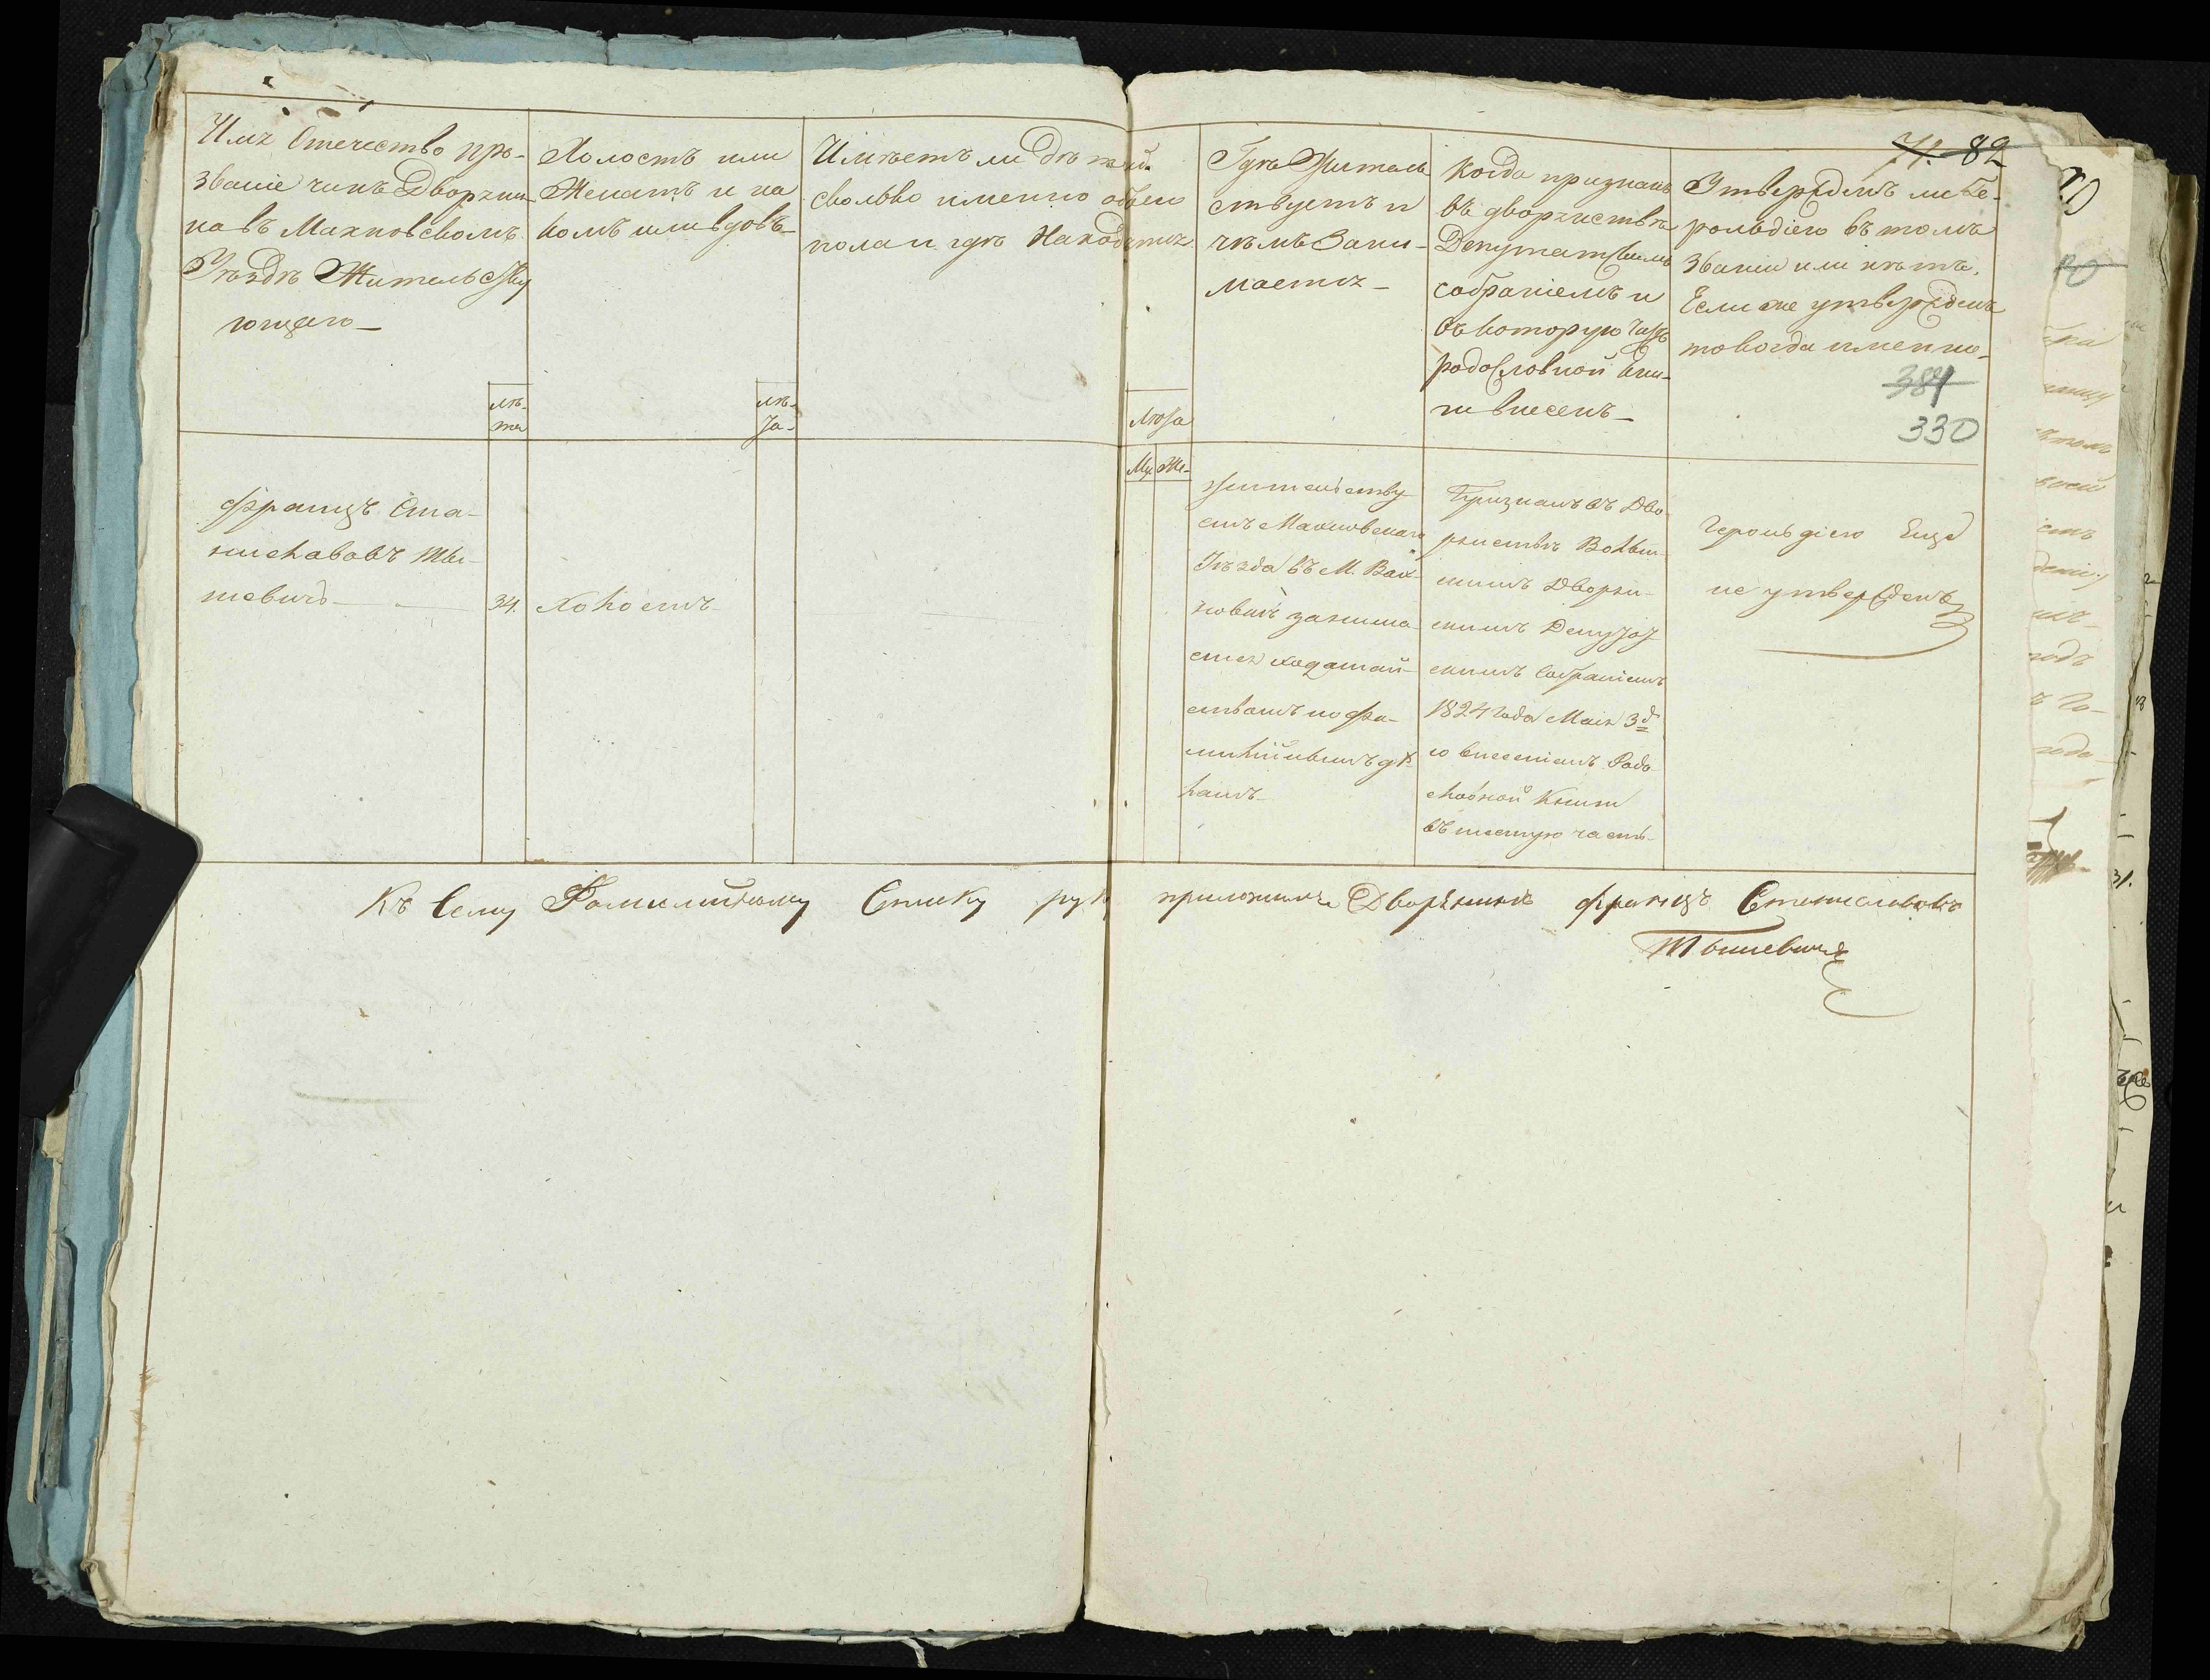 71. 82
Имя Отечество про-
званіе чинъ Дворяни-
на въ Махновскомъ
Уѣздѣ Жительству
ющаго
лѣ-
та
Холостъ или
Женатъ и на
комъ или вдовъ
лѣ-
та
Имѣетъ ли дѣтей
сколько именно обоего
пола и гдѣ Находятся
Лѣта
Му Же-
Гдѣ Житель
ствуетъ и
чѣмъ Зани-
мается
Когда признанъ
въ дворянствѣ
Депутатскимъ
собраніемъ и
въ которую часть
родословной кни-
ги внесенъ
Утвержденъ ли Ге-
рольдіею въ томъ
Званіи или нѣтъ.
Если же утвержденъ
то когда именно
384
330
Францъ Ста-
ниславовъ Ты-
шевичъ
34.
Холостъ
Жительству
етъ Махновскаго
Уѣзда въ М. Вах-
новкѣ занима
ется ходатай-
ствомъ по фа-
милійнымъ дѣ
ламъ
Признанъ въ Дво
рянствѣ Волын-
скимъ Дворян-
скимъ Депутат
скимъ Собраніемъ
1824 года Мая 3д
со внесеніемъ Родо
словной Книги
въ шестую часть
Герольдіею Еще
не утвержденъ
Къ Сему Фамилийному Списку рук приложилъ Дворянинъ Францъ Станиславовъ
Тышевичъ